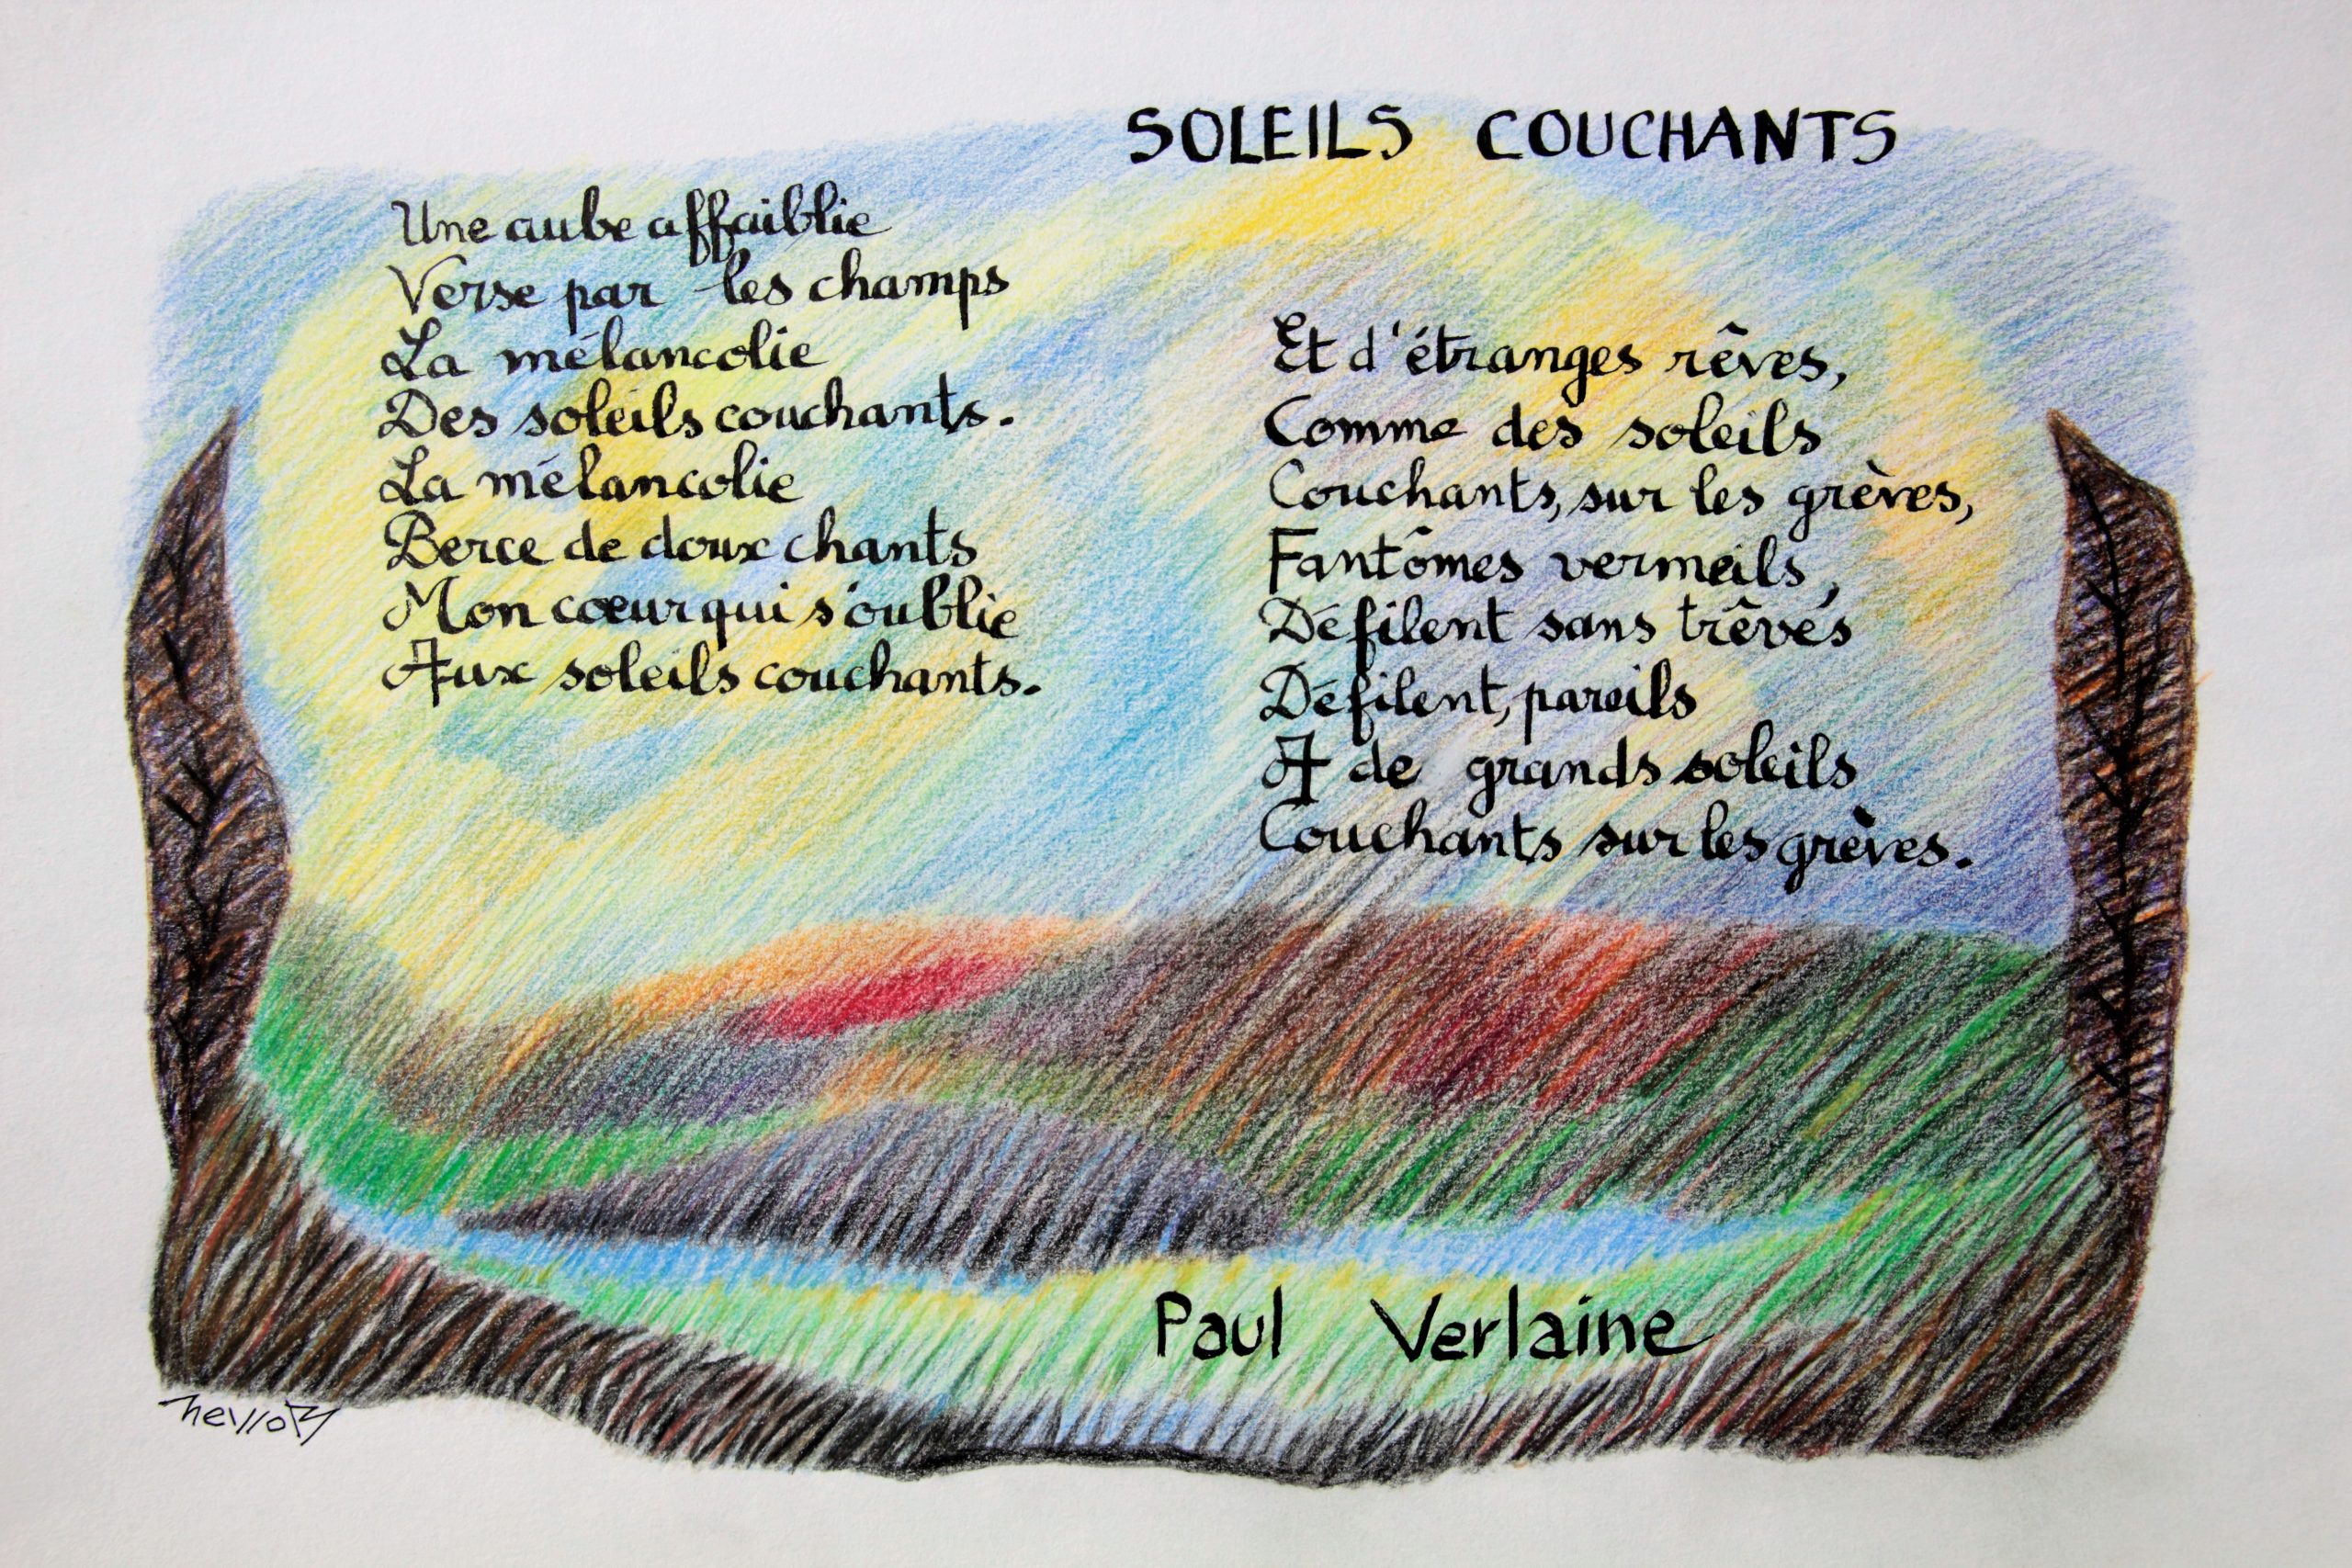 SOLEILS COUCHANTS
Une aube affaiblie
Verse par les champs
La mélancolie
Des soleils couchants.
La mélancolie
Berce de doux chants
Mon cœur qui s'oublie
Aux soleils couchants.
Et d'étranges rêves,
Comme des soleils
Couchants, sur les grèves,
Fantômes vermeils,
Défilent sans trêves
Défilent, pareils
A de grands soleils
Couchants sur les grèves.
Paul Verlaine